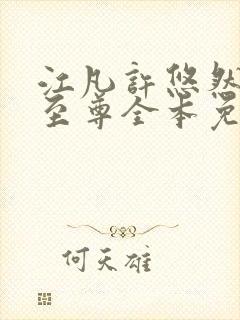 江凡許悠然
至尊全本免
何天雄